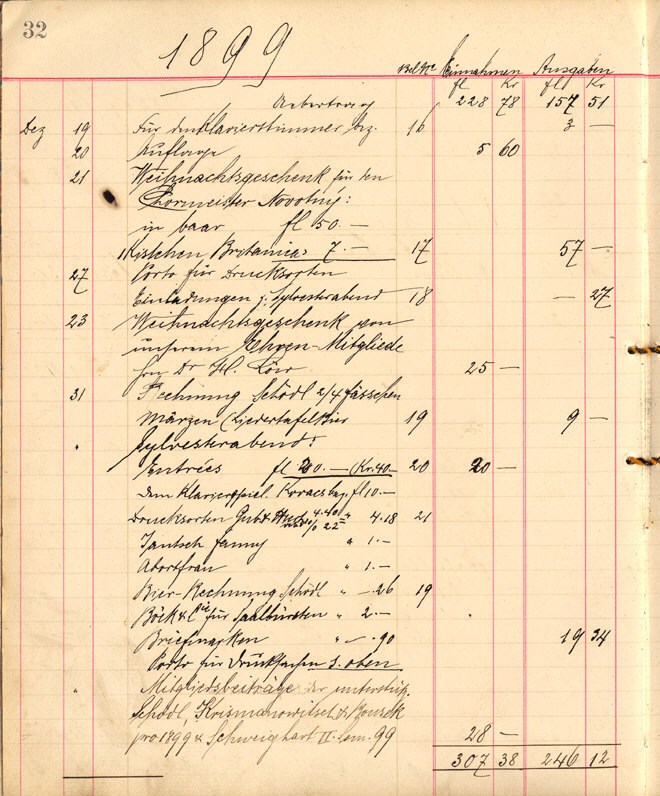 32
1899
Bel Nr Einnahmen Ausgaben
fl Kr fl Kr
Uebertrag 228 78 157 51
Dez 19 Für den Klavierstimmer bez. 16 3 —
20 5 60
21 Weihnachtsgeschenk für den
Chormeister Novotný:
in baar fl 50.—
1 Kistchen Britanica: 7.— 17 57 —
27 Porto für Drucksorten
Einladungen z. Sylvesterabend 18 — 27
23 Weihnachtsgeschenk von
unserem Ehren-Mitgliede
Hrn Dr H. Löw 25 —
31 Rechnung Schödl 2/4 fässchen
Märzen (Liedertafel Bier 19 9 —
Sylvesterabend:
Entrées fl 20.— (Kr. 40— 20 20 —
dem Klavierspiel. Kovacs bez. fl 10.—
Drucksorten Gubt. 4.40 " 4.18 21
% 22
Jantsch Fanny " 1.—
Abortfrau " 1.—
Bier-Rechnung Schödl " —.26 19
Böck & Cie für Saalbürsten " 2.—
Briefmarken " —.90 19 34
Porto für Drucksachen s. oben
Mitgliedsbeiträge der unterstütz.
Schödl, Krismanowitsch &
pro 1899 & Schweighart II. Sem. 99 28 —
307 38 246 12